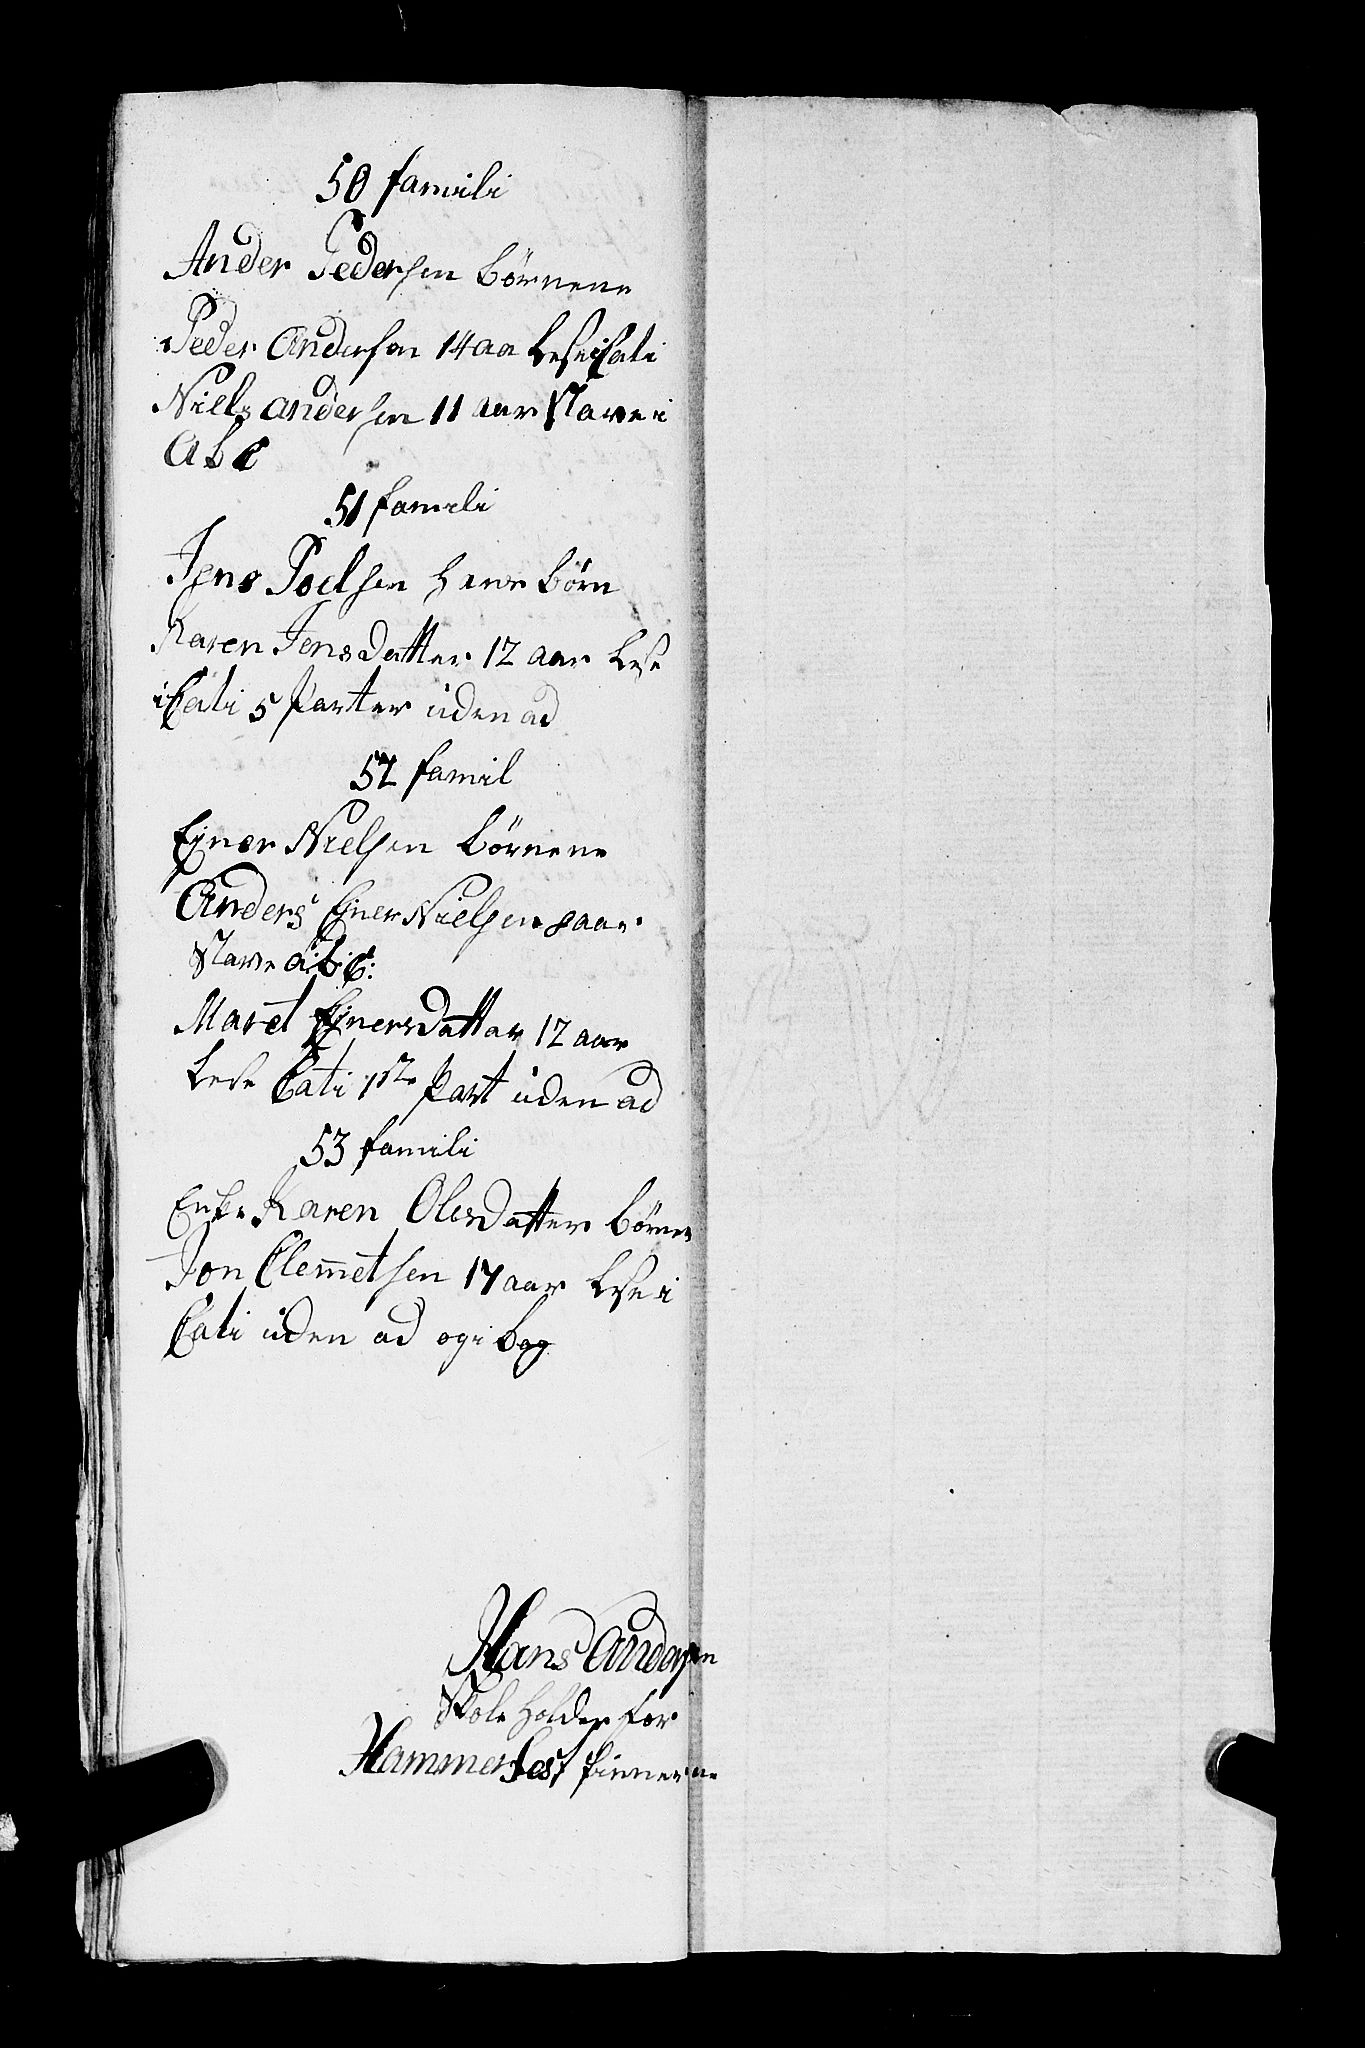 50 famili
Ander Pedersen börnene
Peder Andersen 14 aa Lese i Cati
Niels andersen 11 aar Stave i
Abc
51 famili
Jens Poelsen hans börn
Karen Jens Datter 12 aar Lese
i Cati 5 Parter üden ad
52 famil
Ejner Nielsen börnene
Anders Ejner Nielsen 8 aar
Stave a:b:c:
Maret Ejners Datter 12 aar
Lese Cati 1ste Part üden ad
53 famili
Enke Karen Olesdatter börne
Jon Clemetsen 17 aar Lese i
Cati üden ad og i bog
Hans Andersen
Skole holder for
Hammerfest finnerne